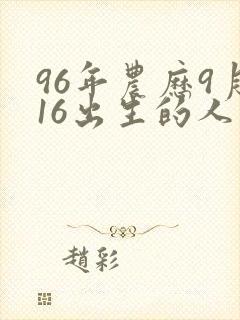 96年農曆9月
16出生的人
趙彩